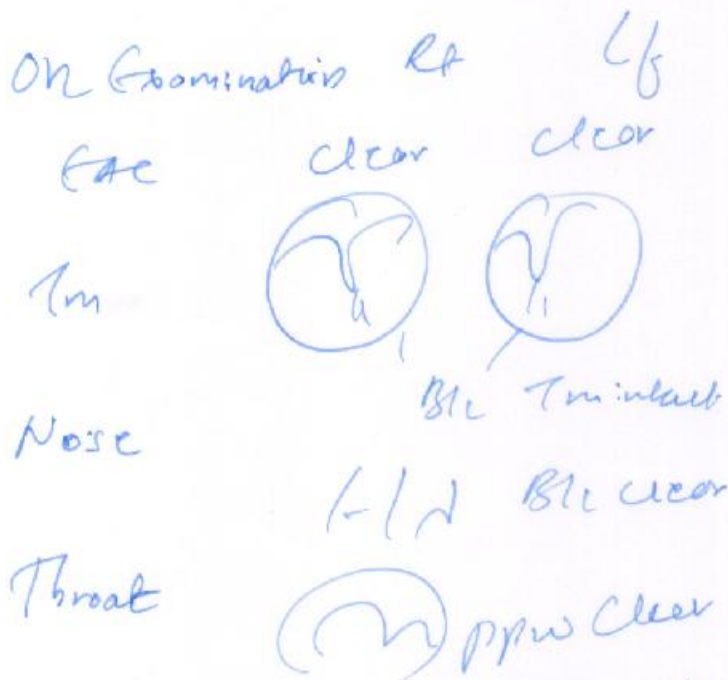 On Examination Rt Lf
EAC clear clear
Tm
B/L Tm intact
Nose
B/L clear
Throat ppw clear